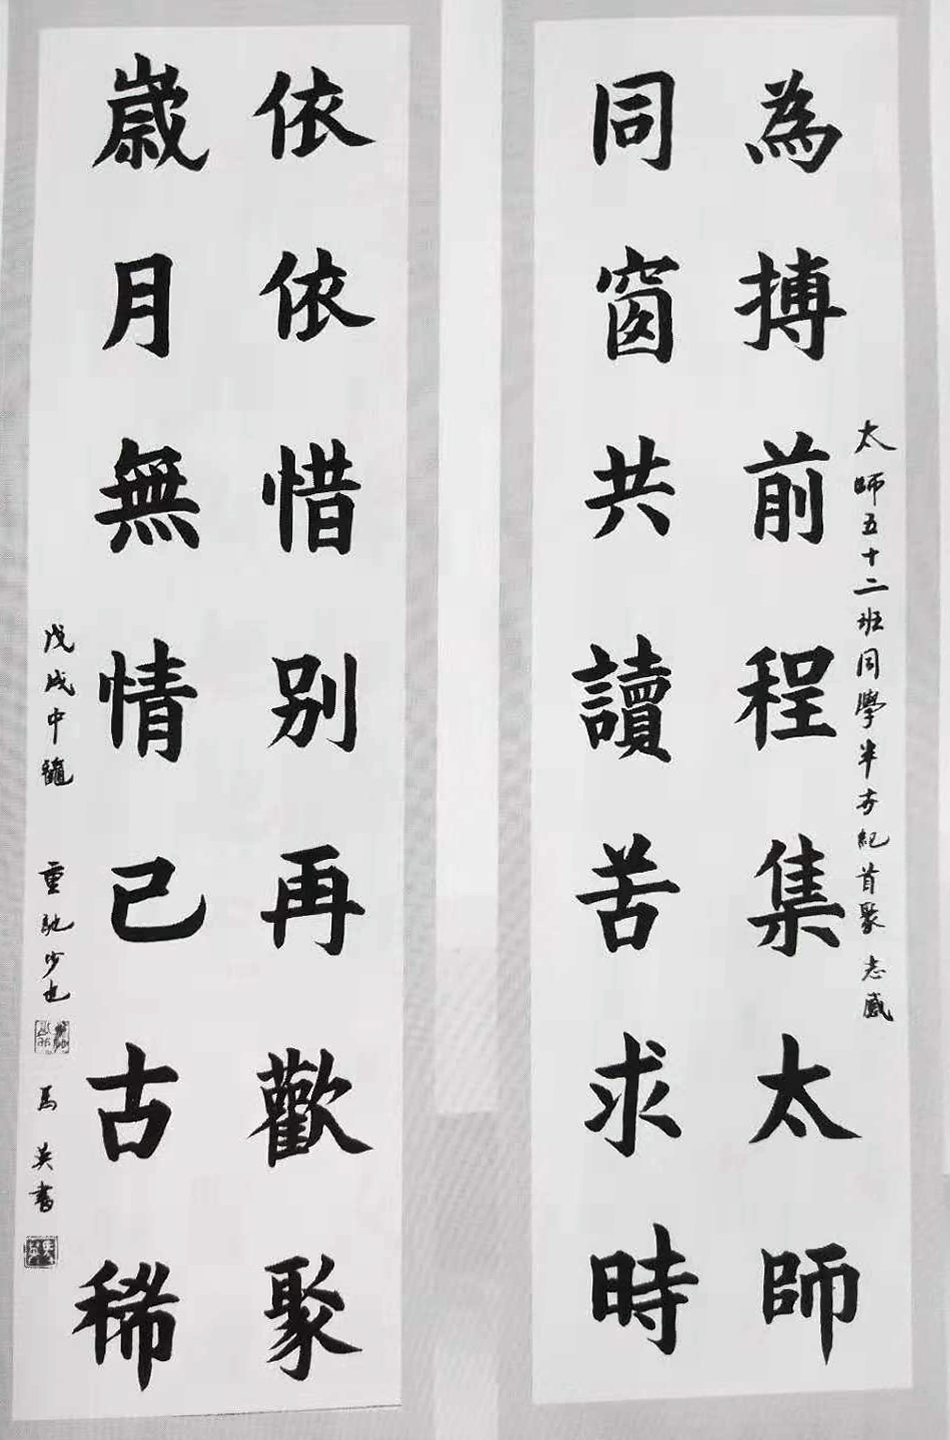 太師五十二班同學半世紀首聚 志感
為搏前程集太師
同窗共讀苦求時
依依惜别再歡聚
歲月無情已古稀
戊戌中龝 重馳少也
馬英書